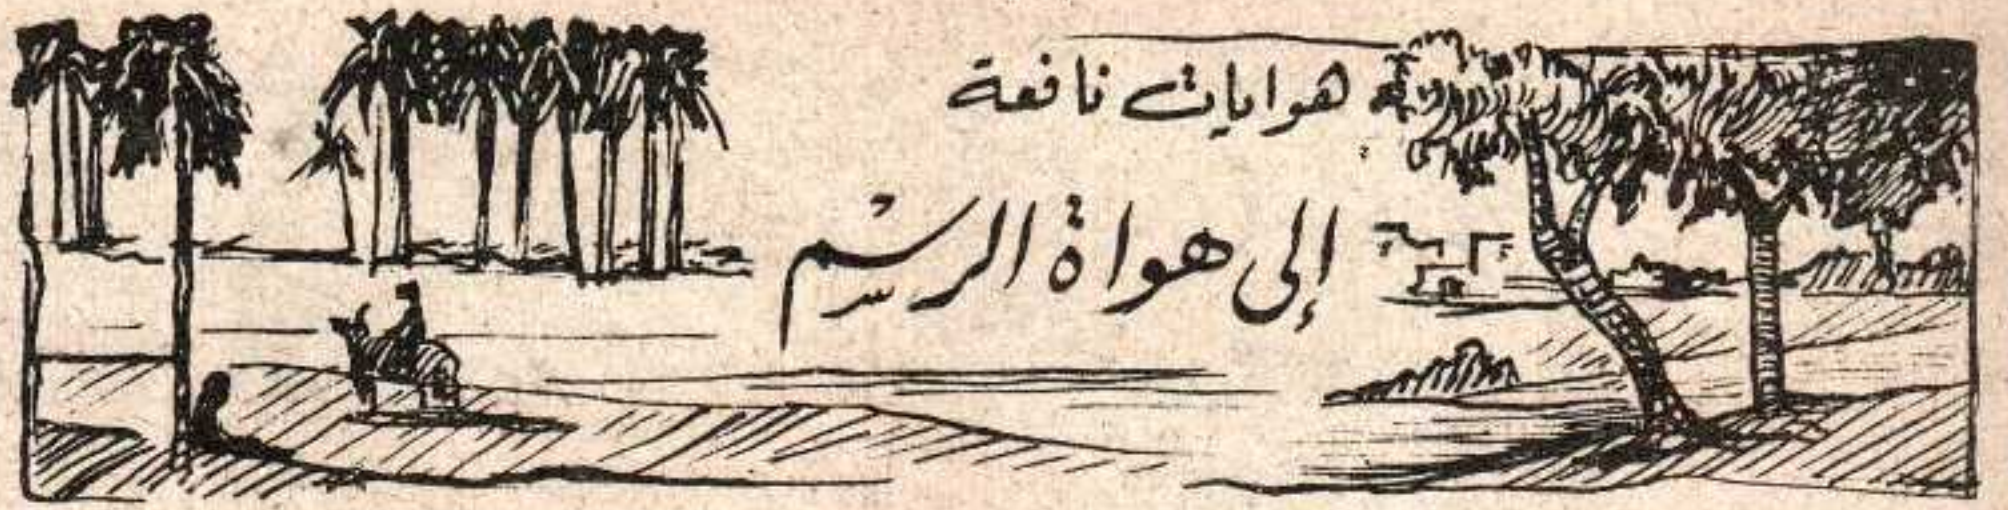 هوايات نافعة
إلى هواة الرسْم